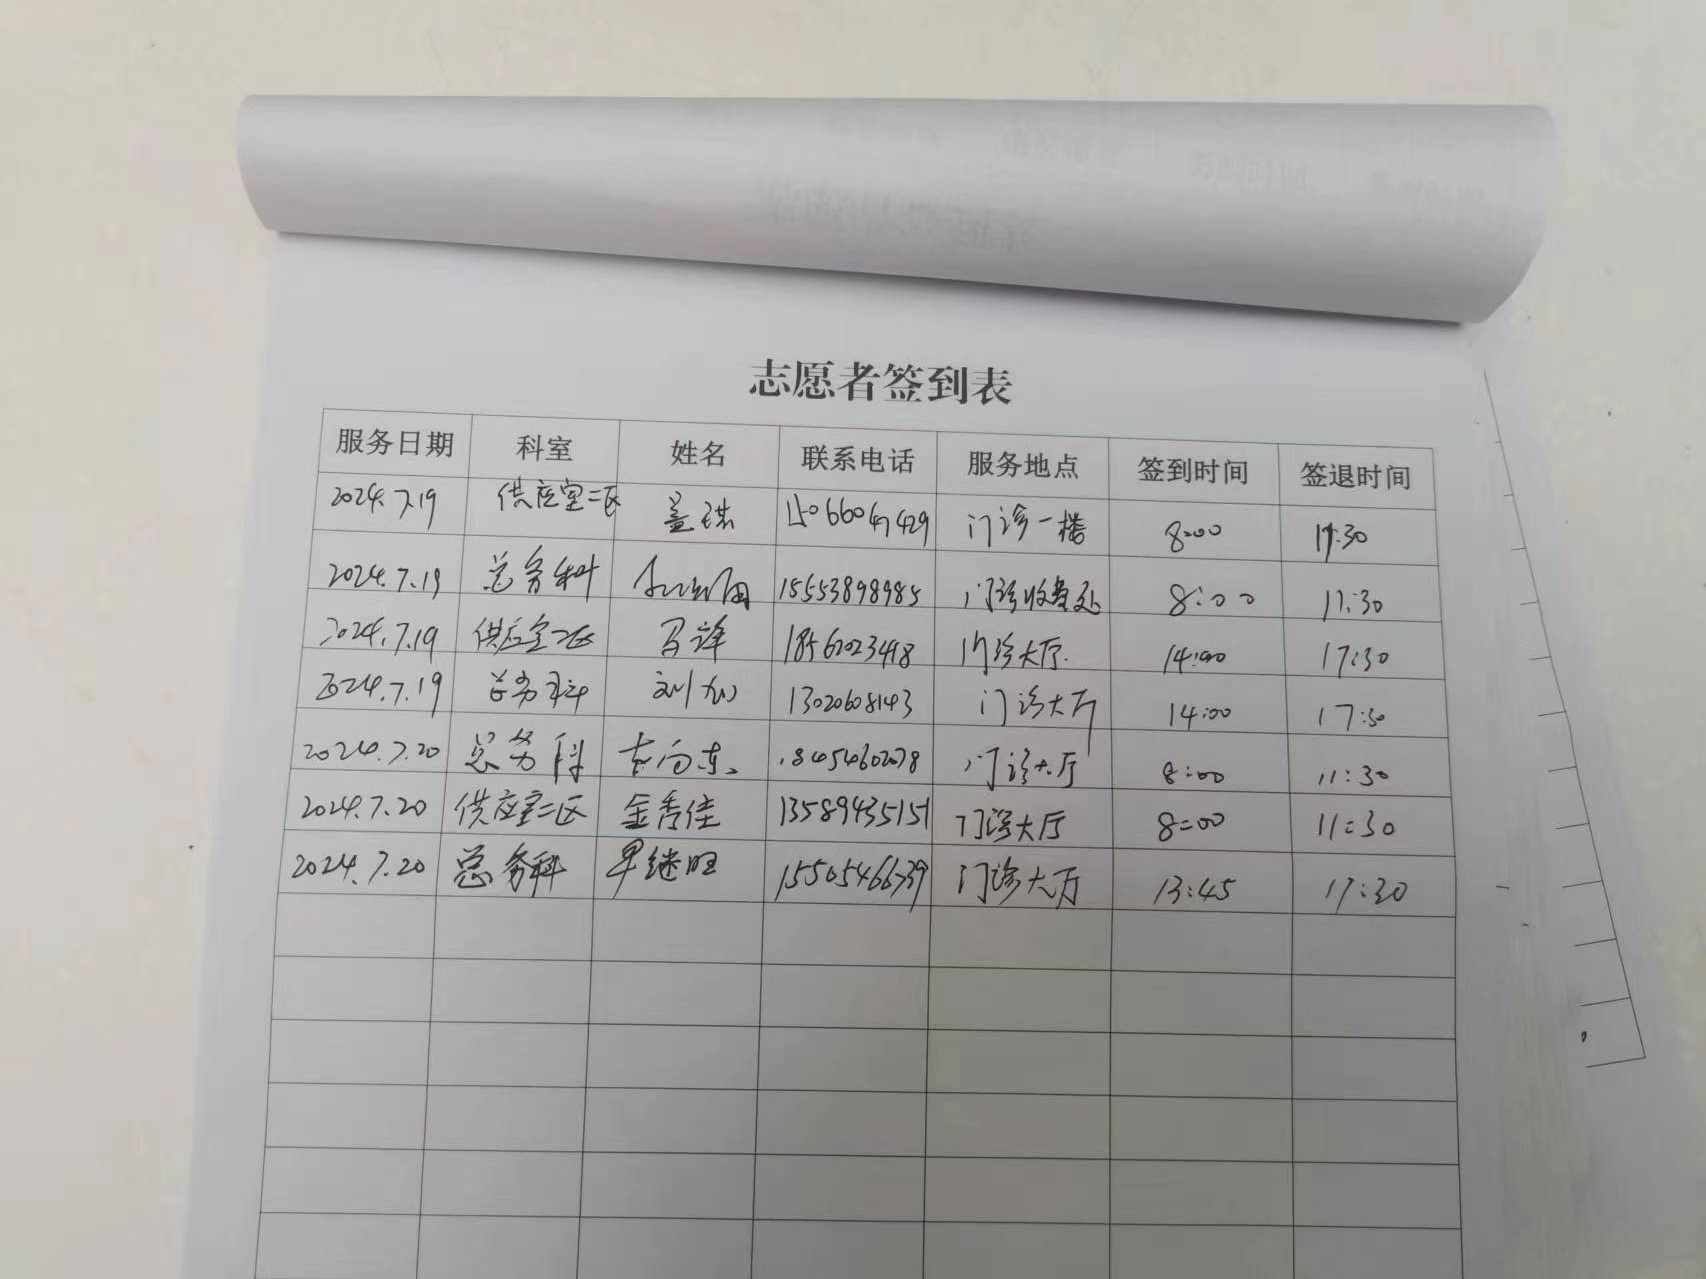 志愿者签到表
服务日期 科室 姓名 联系电话 服务地点 签到时间 签退时间
2024.7.19 供应室二区 盖琪 15066047429 门诊一楼 8:00 11:30
2024.7.19 总务科 15553898985 门诊收费处 8:00 11:30
2024.7.19 供应室二区 马锋 18562023418 门诊大厅. 14:00 17:30
2024.7.19 总务科 刘 13020608143 门诊大厅 14:00 17:30
2024.7.20 总务科 向东 18454602078 门诊大厅 8:00 11:30
2024.7.20 供应室二区 金秀佳 13589435151 门诊大厅 8:00 11:30
2024.7.20 总务科 继旺 15505466739 门诊大厅 13:45 17:30